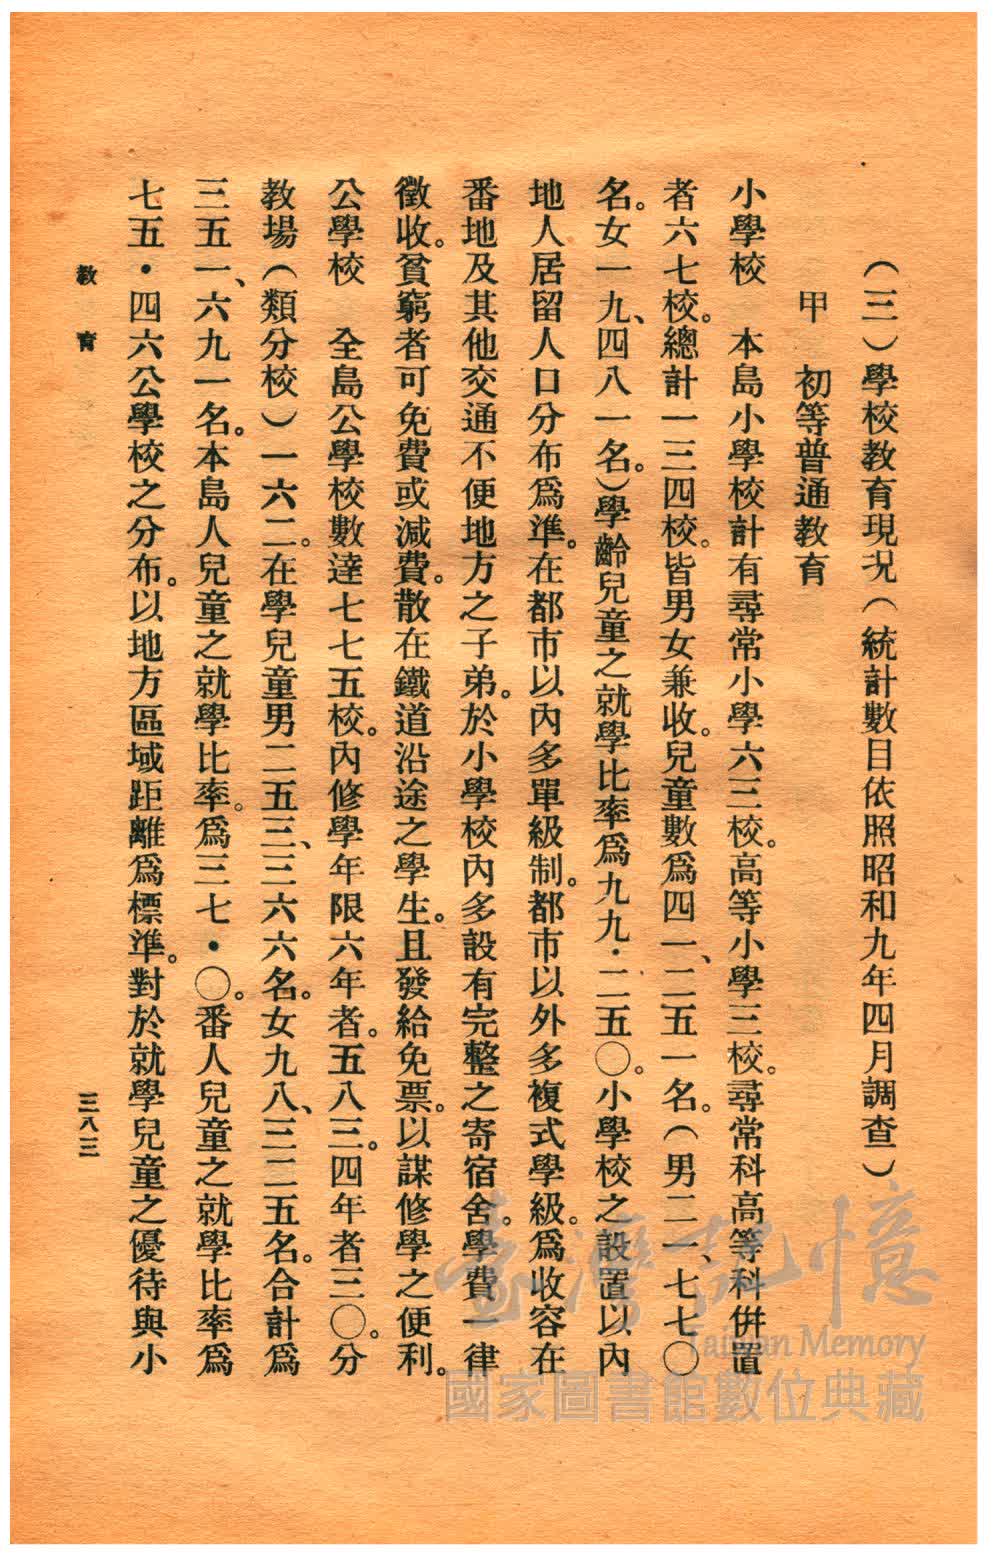 （三）學校教育現況（統計數目依照昭和九年四月調查）
甲　初等普通教育
小學校　本島小學校計有尋常小學六三校。高等小學三校。尋常科高等科併置
者六七校。總計一三四校。皆男女兼收。兒童數爲四一、二五一名。（男二一、七七〇
名。女一九、四八一名。）學齡兒童之就學比率爲九九・二五〇。小學校之設置以內
地人居留人口分布爲準。在都市以內多單級制。都市以外多複式學級。爲收容在
番地及其他交通不便地方之子弟。於小學校內多設有完整之寄宿舍。學費一律
徵收。貧窮者可免費或減費。散在鐵道沿途之學生。且發給免票。以謀修學之便利。
公學校　全島公學校數達七七五校。內修學年限六年者。五八三。四年者三〇。分
教場（類分校）一六二。在學兒童男二五三、三六六名。女九八、三二五名。合計爲
三五一、六九一名。本島人兒童之就學比率。爲三七・〇。番人兒童之就學比率爲
七五・四六公學校之分布。以地方區域距離爲標準。對於就學兒童之優待與小
教育
三八三
臺灣記憶
Taiwan Memory
國家圖書館數位典藏